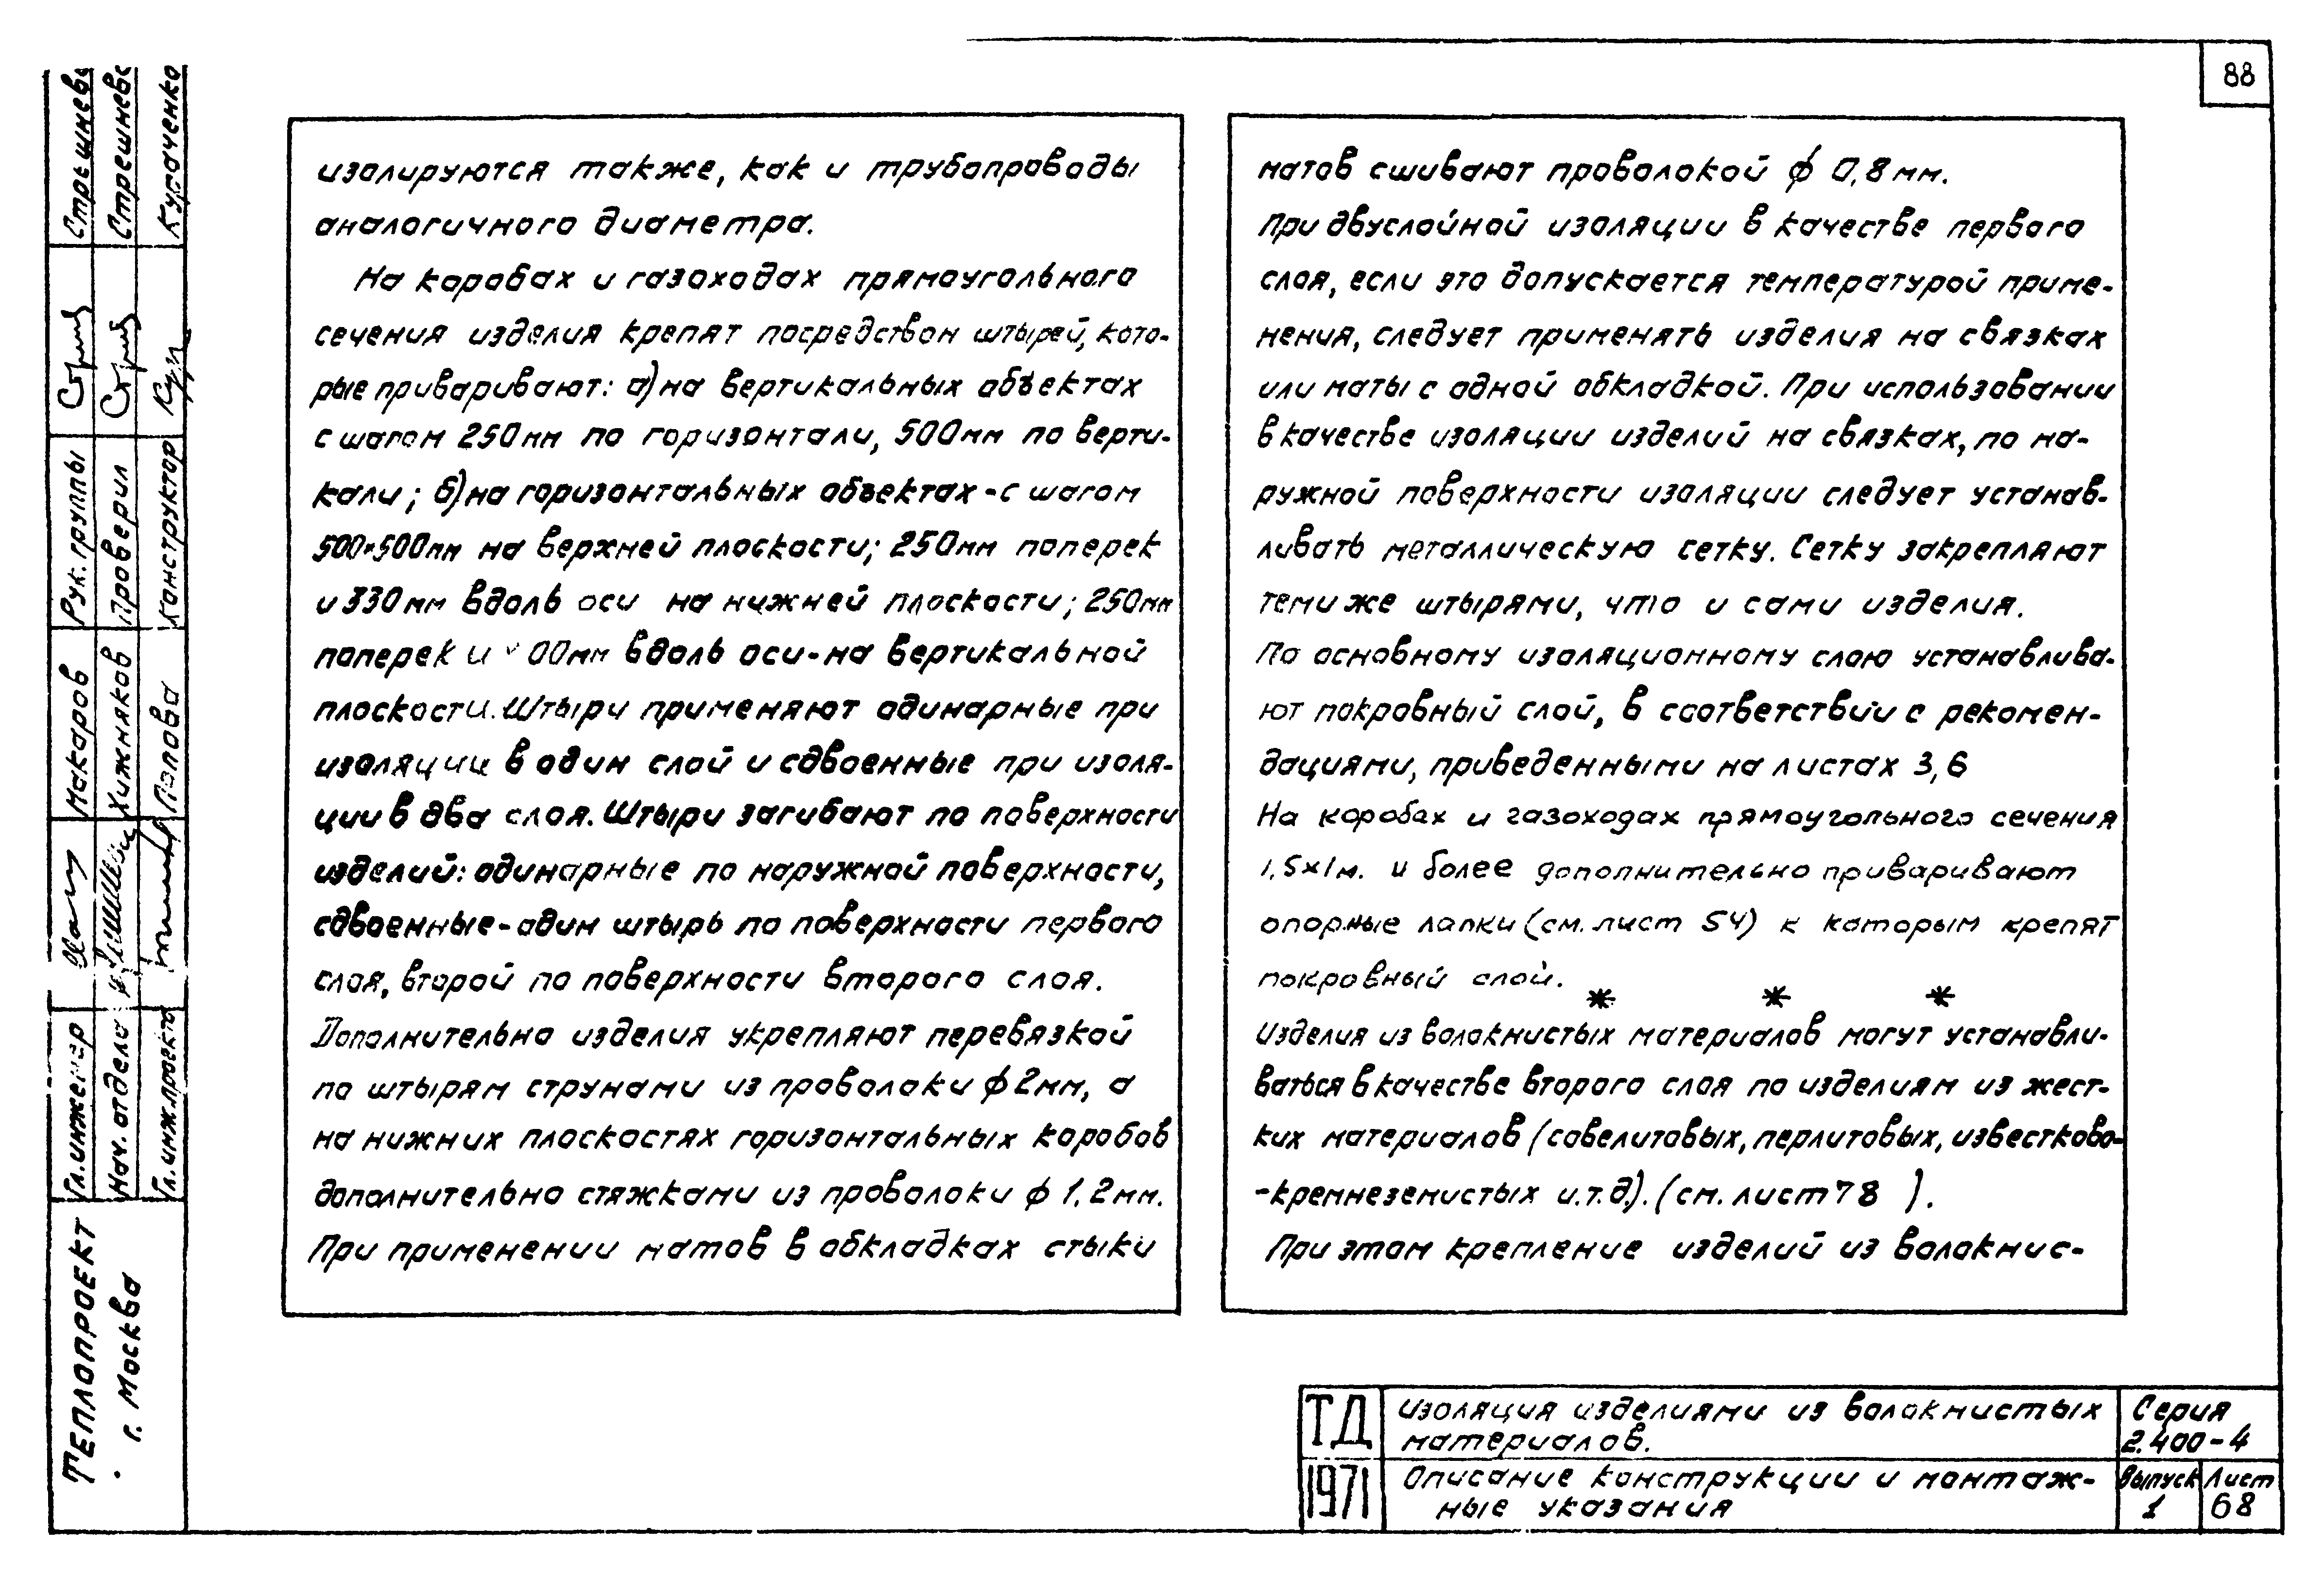 88
изолируются также, как и трубопроводы
аналогичного диаметра.
На коробах и газоходах прямоугольного
сечения изделия крепят посредством штырей, кото-
рые приваривают: а) на вертикальных объектах
с шагом 250мм по горизонтали, 500мм по верти-
кали; б) на горизонтальных объектах - с шагом
500×500мм на верхней плоскости; 250мм поперек
и 330мм вдоль оси на нижней плоскости; 250мм
поперек и 00мм вдоль оси - на вертикальной
плоскости. Штыри применяют одинарные при
изоляции в один слой и сдвоенные при изоля-
ции в два слоя. Штыри загибают по поверхности
изделий: одинарные по наружной поверхности,
сдвоенные - один штырь по поверхности первого
слоя, второй по поверхности второго слоя.
Дополнительно изделия укрепляют перевязкой
по штырям струнами из проволоки ф 2мм, а
на нижних плоскостях горизонтальных коробов
дополнительно стяжками из проволоки ф 1,2мм.
При применении матов в обкладках стыки
матов сшивают проволокой ф 0,8мм.
При двуслойной изоляции в качестве первого
слоя, если это допускается температурой приме-
нения, следует применять изделия на связках
или маты с одной обкладкой. При использовании
в качестве изоляции изделий на связках, по на-
ружной поверхности изоляции следует устанав-
ливать металлическую сетку. Сетку закрепляют
теми же штырями, что и сами изделия.
По основному изоляционному слою устанавлива-
ют покровный слой, в соответствии с рекомен-
дациями, приведенными на листах 3,6
На коробах и газоходах прямоугольного сечения
1,5×1м. и более дополнительно приваривают
опорные лапки (см. лист 54) к которым крепят
покровный слой.
* * *
Изделия из волокнистых материалов могут устанавли-
ваться в качестве второго слоя по изделиям из жест-
ких материалов (совелитовых, перлитовых, известково-
-кремнеземистых и.т.д.). (см. лист 78 ).
При этом крепление изделий из волокнис-
ТД
1971
Изоляция изделиями из волокнистых
материалов.
Описание конструкции и монтаж-
ные указания
Серия
2.400-4
Выпуск
1
Лист
68
Теплопроект
г. Москва
Гл. инженер
Макаров
Рук. группы
Стрешнева
Нач. отдела
Хижняков
Проверил
Стрешнева
Гл. инж. проекта
Попова
Конструктор